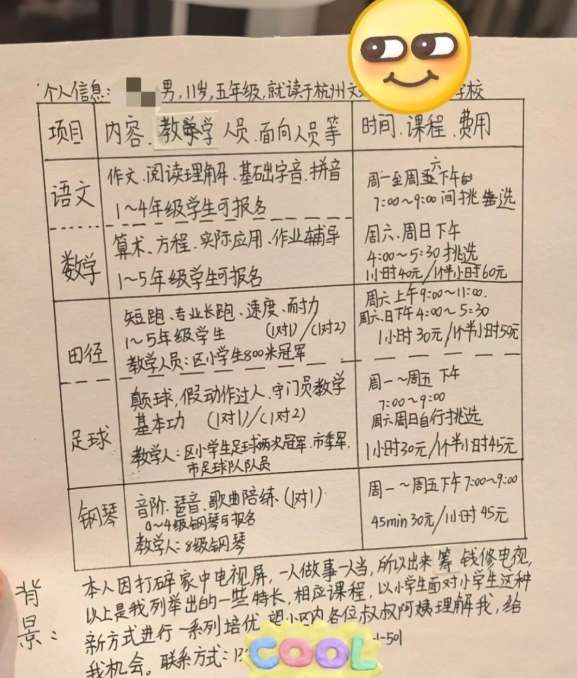 个人信息: 男, 11岁, 五年级, 就读于杭州文 学校
项目 内容、教学人员、面向人员等 时间、课程、费用
语文 作文、阅读理解、基础字音、拼音
1~4年级学生可报名
周一至周六下午的
7:00~9:00间挑选
数学 算术、方程、实际应用、作业辅导
1~5年级学生可报名
周六、周日下午
4:00~5:30挑选
1小时40元/1个半小时60元
田径 短跑、专业长跑、速度、耐力
1~5年级学生 (1对1)/(1对2)
教学人员:区小学生800米冠军
周六上午9:00~11:00.
周六、日下午4:00~5:30
1小时30元/1个半小时50元
足球 颠球、假动作过人、守门员教学
基本功 (1对1)/(1对2)
教学人:区小学生足球两次冠军、市季军、
市足球队队员
周一~周五下午
7:00~9:00
周六周日自行挑选
1小时30元/1个半小时45元
钢琴 音阶、琶音、歌曲陪练、(1对1)
0~4级钢琴可报名
教学人:8级钢琴
周一~周五下午7:00~9:00
45min30元/1小时45元
背景:
本人因打碎家中电视屏,一人做事一人当,所以出来筹钱修电视,
以上是我列举出的一些特长,相应课程,以小学生面对小学生这种
新方式进行一系列培优,望小区内各位叔叔阿姨理解我,给
我机会。联系方式:
COOL